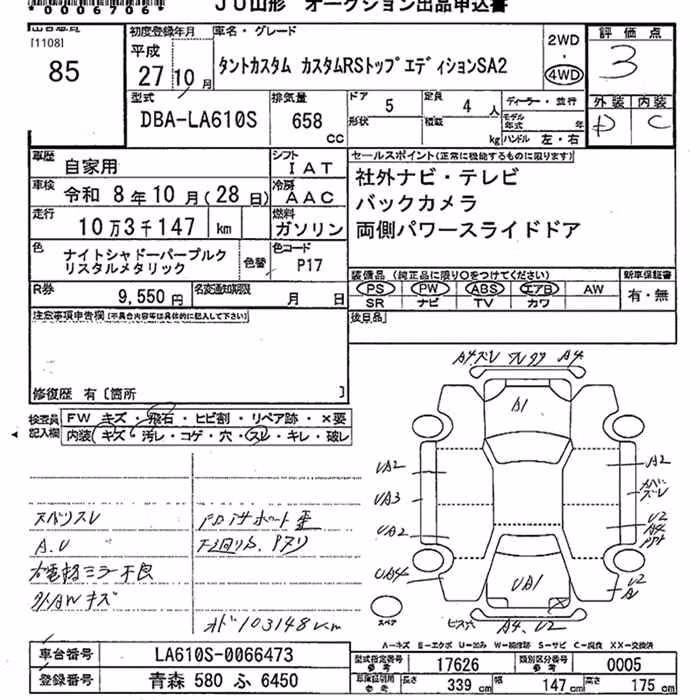 *0006706*
JU山形 オークション出品申込書
[1108]
85
初度登録年月
平成
27年10月
車名・グレード
タントカスタム カスタムRSトップエディションSA2
2WD
・
4WD
評価点
3
外装 内装
D C
型式
DBA-LA610S
排気量
658
cc
ドア 5
形状
定員 4 人
積載 kg
ディーラー・並行
モデル年式 年
ハンドル 左・右
車歴
自家用
シフト
IAT
車検
令和 8年10月(28日)
冷房
AAC
走行
10万3千147 km
燃料
ガソリン
色
ナイトシャドーパープルクリスタルメタリック
色替
色コード
P17
R券
9,550円
名変通知期限
月 日
セールスポイント(正常に機能するものに限ります)
社外ナビ・テレビ
バックカメラ
両側パワースライドドア
装備品 (純正品に限り○をつけてください)
PS PW ABS エアB AW
SR ナビ TV カワ
新車保証書
有・無
後日品
注意事項申告欄(不具合内容等は具体的に記入して下さい)
修復歴 有〔箇所 〕
検査員記入欄
FW キズ・飛石・ヒビ割・リペア跡・×要
内装 キズ・汚レ・コゲ・穴・スレ・キレ・破レ
スベリスレ
A.U
右電格ミラー不良
外AWキズ
下回りS.Pアリ
オド103148km
A4.スレ
A4
A1
UA2
UA3
UA2
UA4
A2
スレ
U2
A4
U2
A
UA1
A4.U2
スペア
A-キズ E-エクボ U-凹み W-補修跡 S-サビ C-腐食 XX-交換済
車台番号
LA610S-0066473
登録番号
青森 580 ふ 6450
型式指定番号
参考
17626
類別区分番号
参考
0005
車検証明用
参考
長さ 339 cm
幅 147 cm
高さ 175 cm